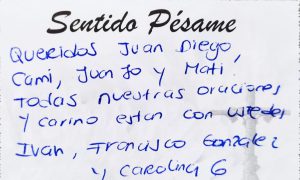 Sentido Pésame
Queridos Juan Diego,
Cami, Juan Jo y Mati.
Todas nuestras oraciones
y carino estan con ustedes
Ivan, Francisco Gonzalez
y Carolina G